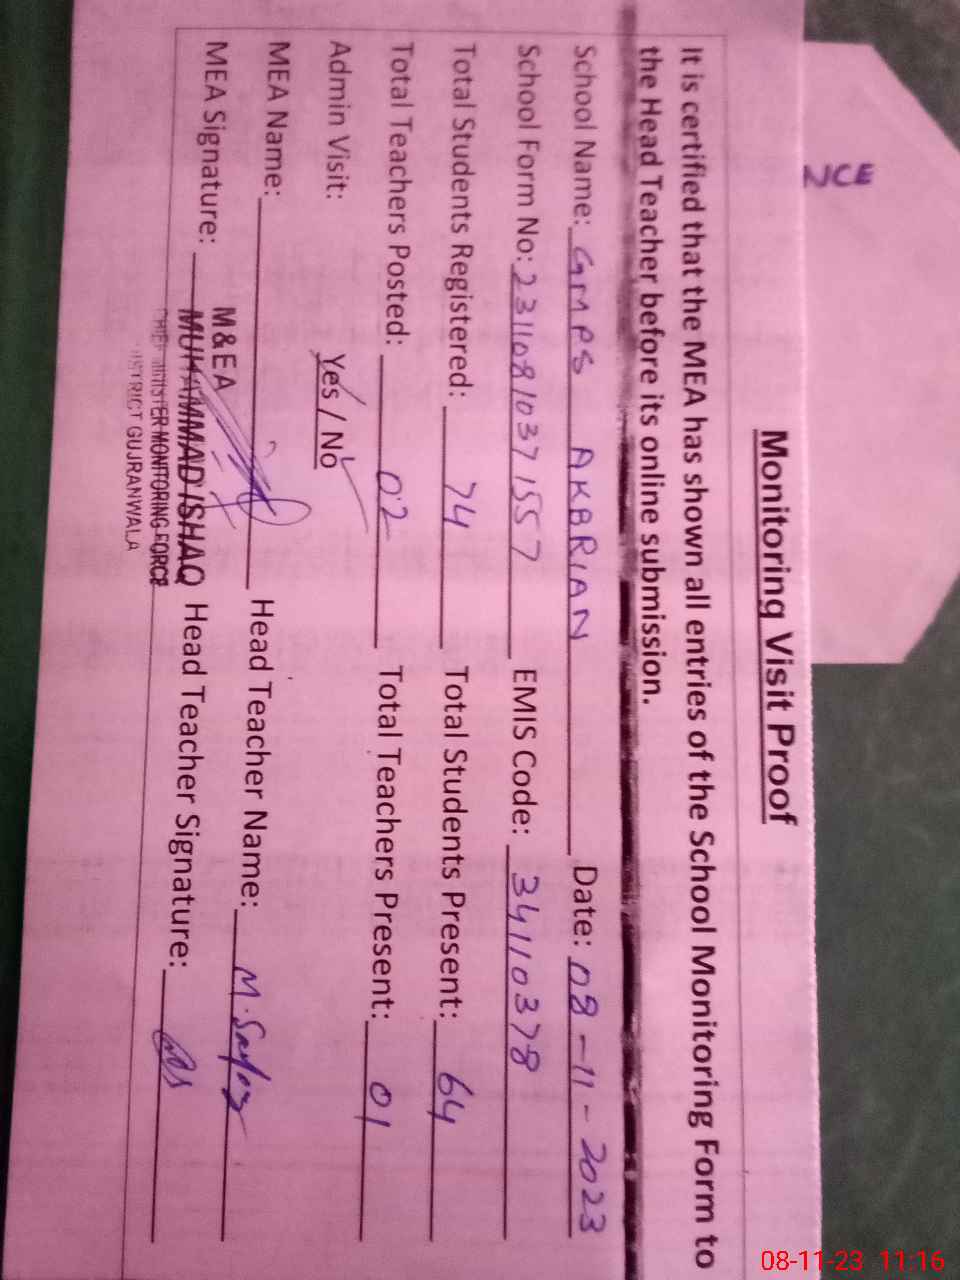 NCE
Monitoring Visit Proof
It is certified that the MEA has shown all entries of the School Monitoring Form to
the Head Teacher before its online submission.
School Name: GMPS AKBRIAN Date: 08-11-2023
School Form No: 2311081037 1557 EMIS Code: 34110378
Total Students Registered: 74 Total Students Present: 64
Total Teachers Posted: 02 Total Teachers Present: 01
Admin Visit: Yes / No
MEA Name: Head Teacher Name: M.
MEA Signature: Head Teacher Signature:
M&EA
MUHAMMAD ISHAQ
CHIEF MINISTER MONITORING FORCE
DISTRICT GUJRANWALA
08-11-23 11:16